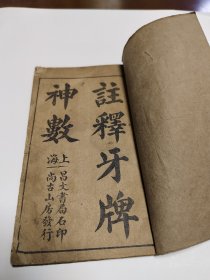 註釋牙牌
神數
上海
昌文書局石印
尚古山房發行